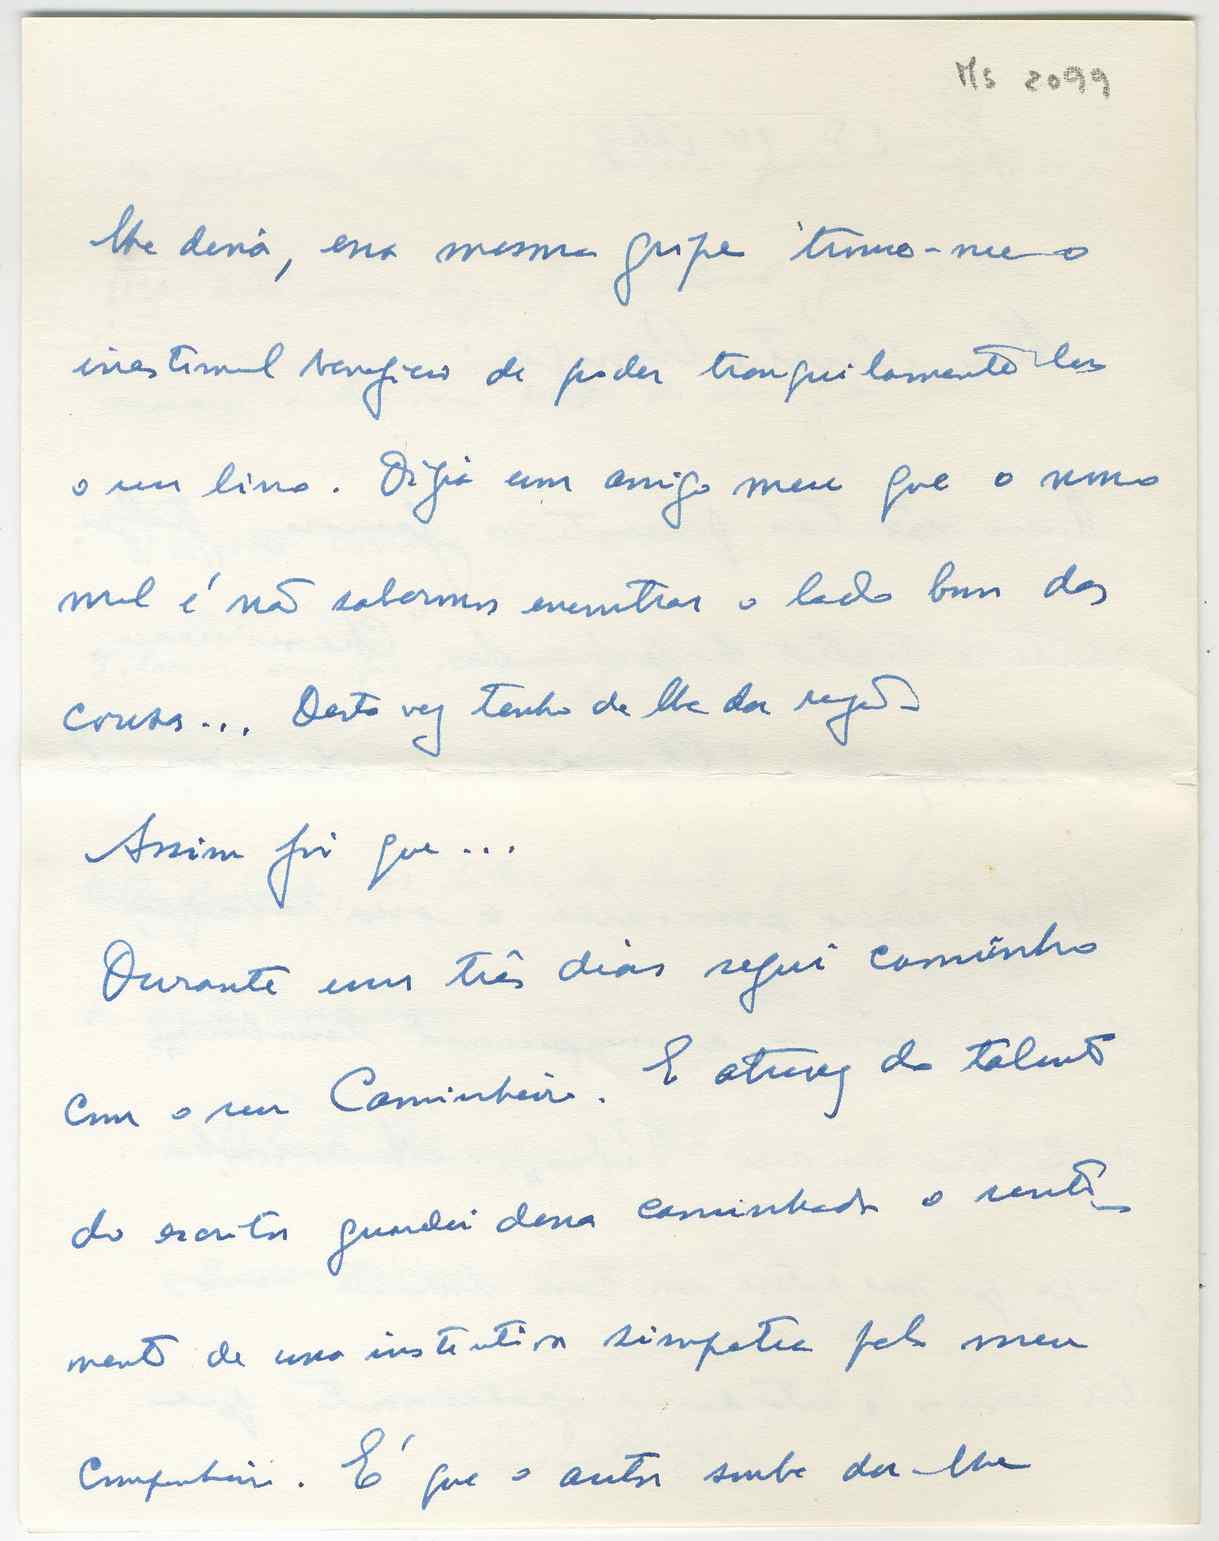 Ms 2099
lhe devia, essa mesma gripe trouxe-me o
inestimavel beneficio de poder tranquilamente ler
o seu livro. Dizia um amigo meu que o nosso
mal é não sabermos encontrar o lado bom das
cousas... Desta vez tenho de lhe dar razão
Assim foi que...
Durante uns três dias segui caminho
com o seu Caminheiro. E atravez do talento
do escritor guardei dessa caminhada o senti-
mento de uma instintiva simpatia pelo meu
companheiro. É que o autor soube dar-lhe